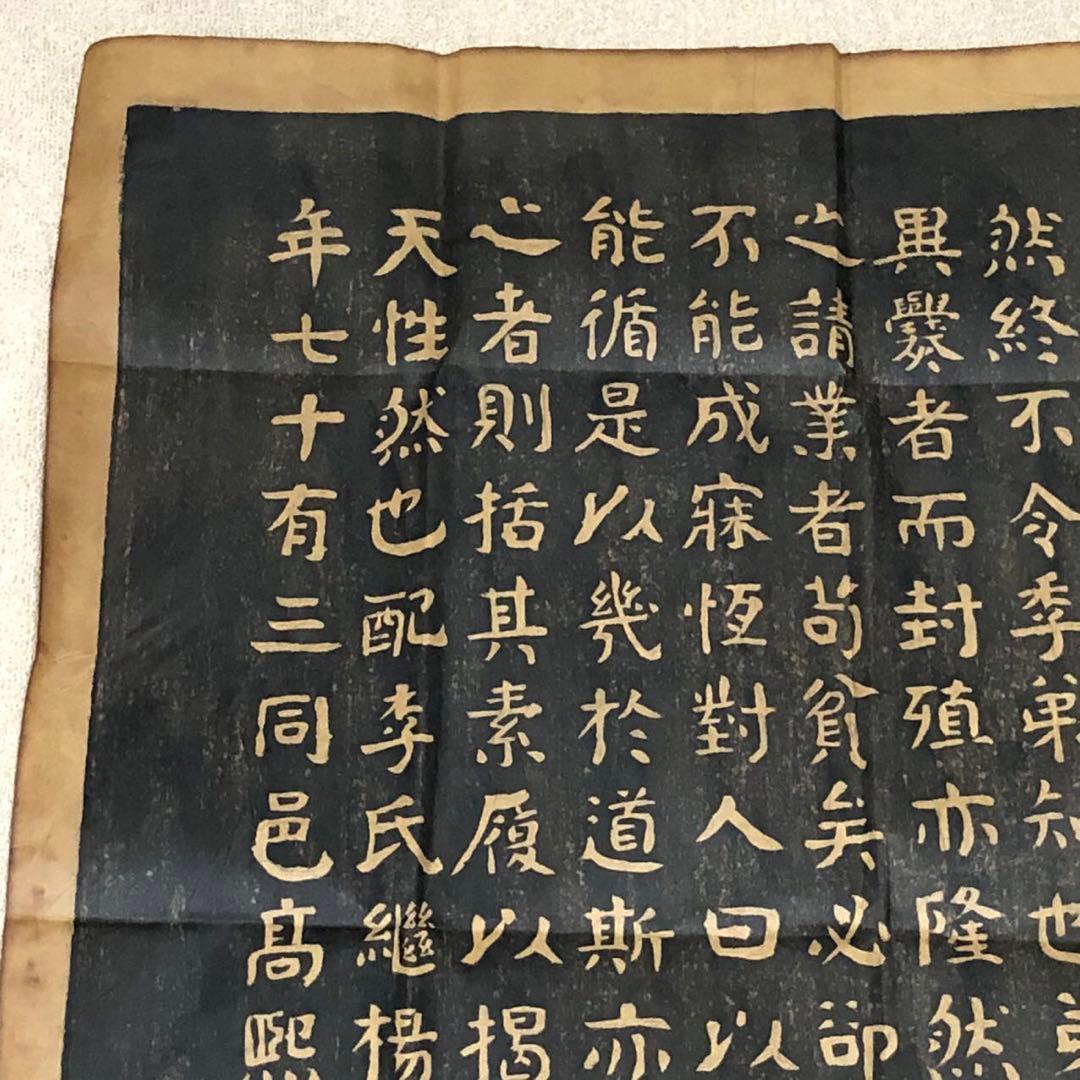 然終不令季弟知也
異爨者而封殖亦隆然
之請業者苟貧矣必卻
不能成寐恆對人曰以
能循是以幾於道斯亦
心者則括其素履以揭
天性然也配李氏繼楊
年七十有三同邑高熙